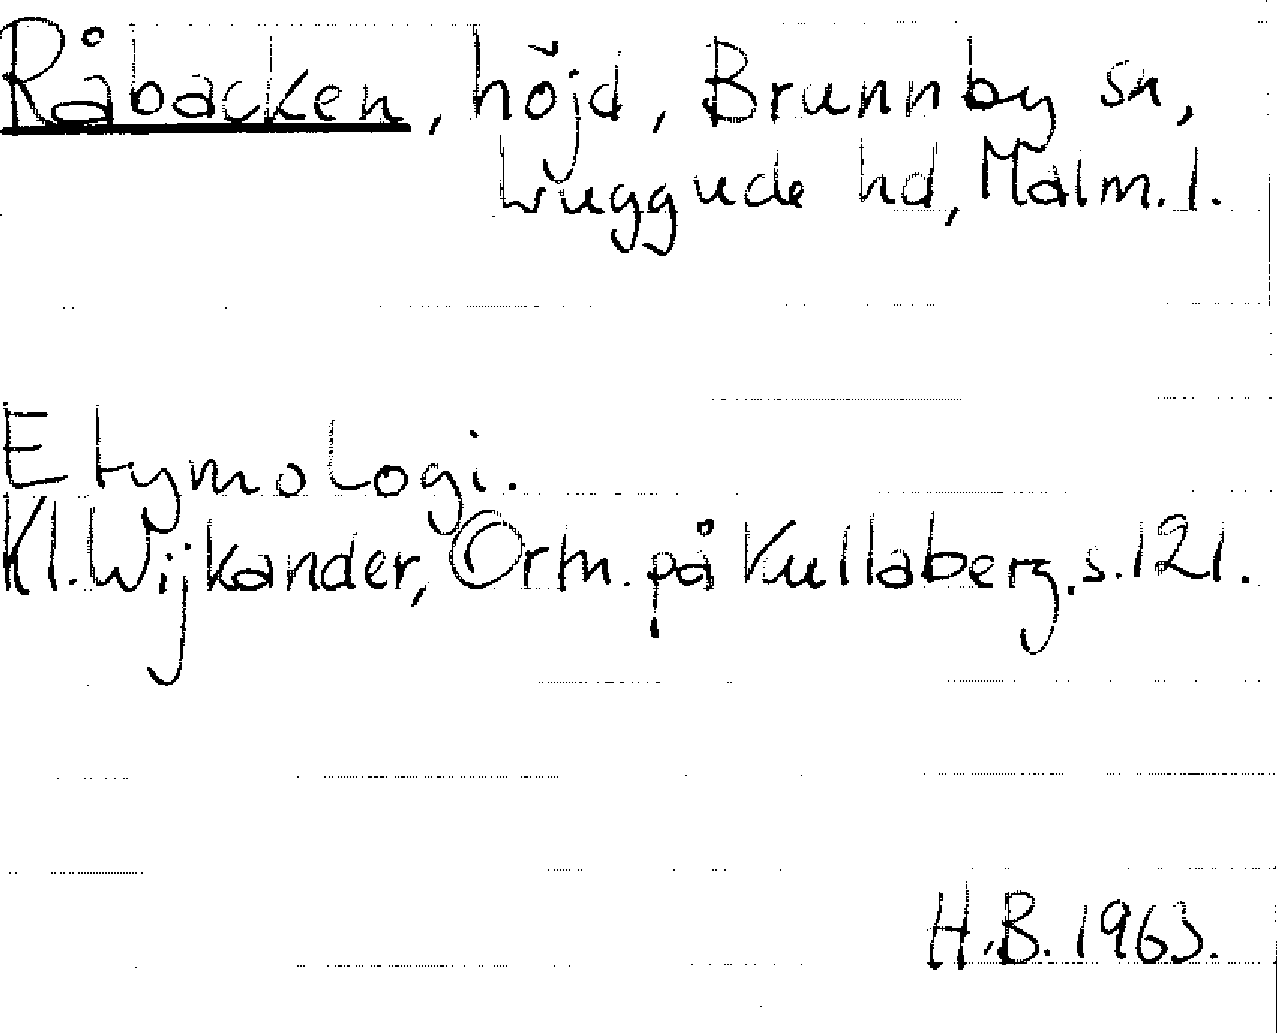 Råbacken, höjd, Brunnby sn,
Luggude hd, Malm. l.
Etymologi.
Kl. Wijkander, Ortn. på Kullaberg. s. 121.
H.B. 1963.